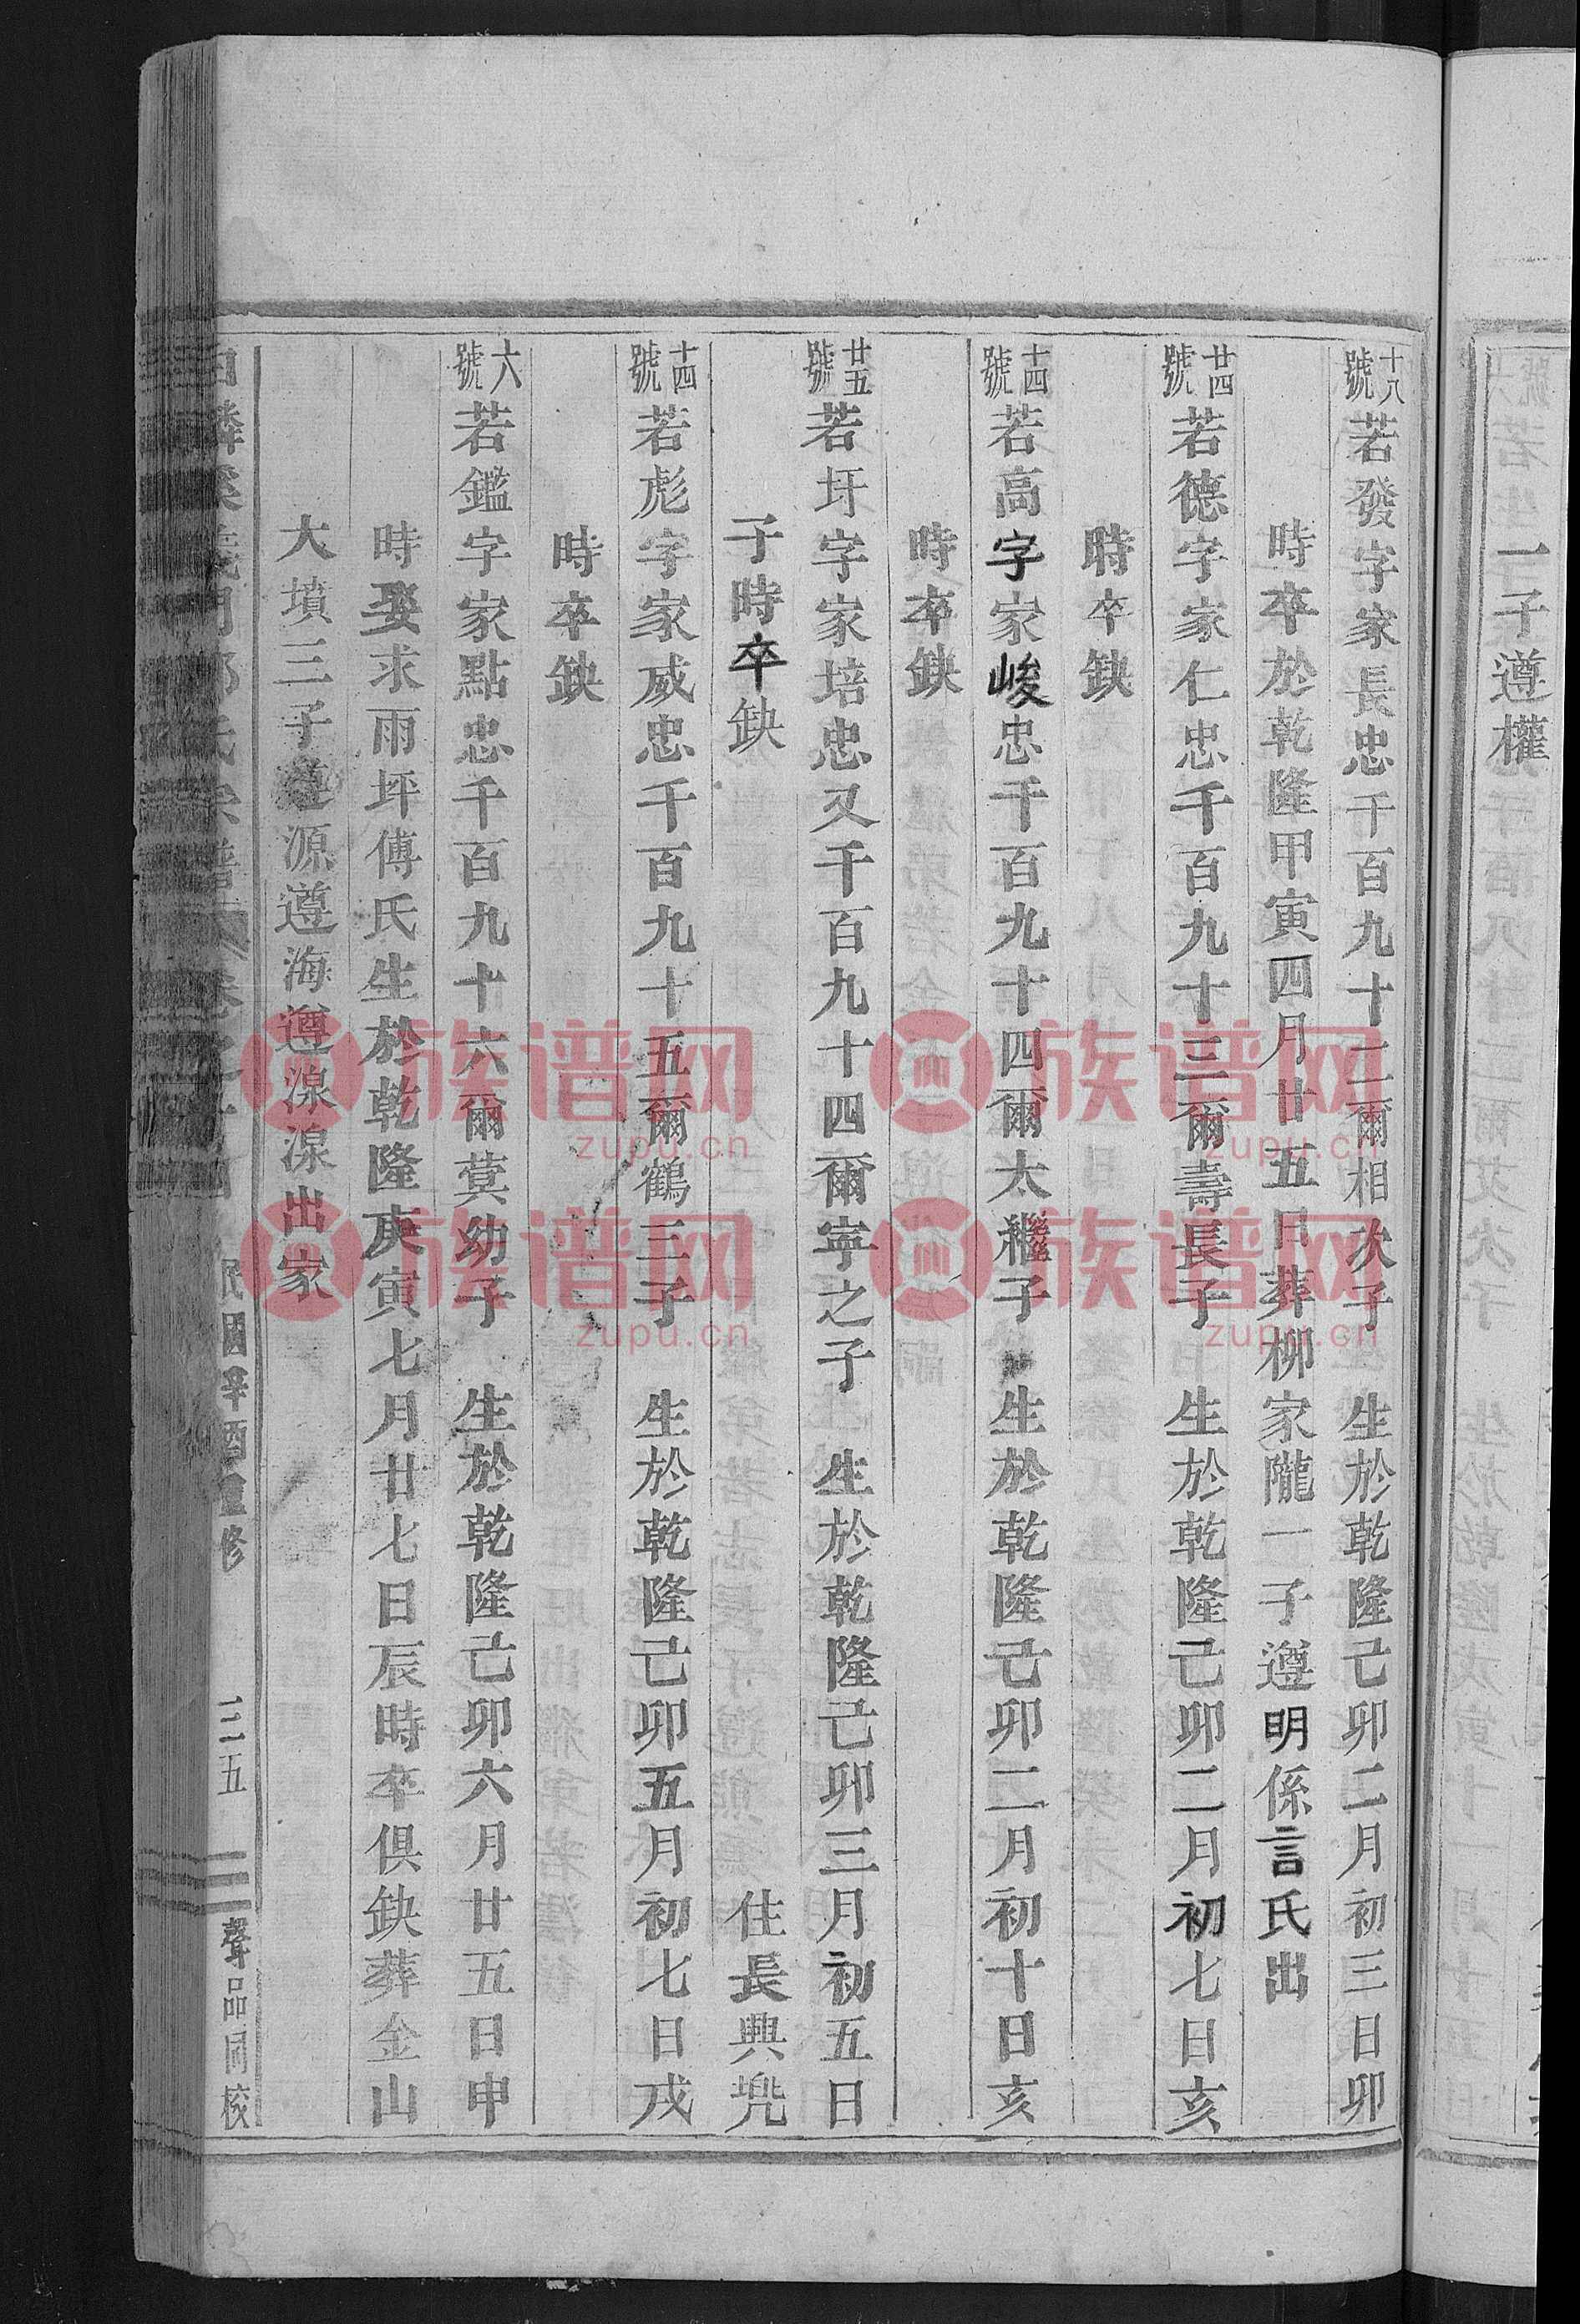 一子遵權
十八號若發字家長忠千百九十二爾相次子 生於乾隆己卯二月初三日卯
時卒於乾隆甲寅四月廿五日葬柳家隴一子遵明係言氏出
廿四號若德字家仁忠千百九十三爾壽長子 生於乾隆己卯二月初七日亥
時卒缺
十四號若高字家峻忠千百九十四爾太繼子 生於乾隆己卯二月初十日亥
時卒缺
廿五號若圩字家培忠又千百九十四爾寧之子 生於乾隆己卯三月初五日
子時卒缺 住長興兠
十四號若彪字家威忠千百九十五爾鶴三子 生於乾隆己卯五月初七日戌
時卒缺
六號若鑑字家點忠千百九十六爾蓂幼子 生於乾隆己卯六月廿五日申
時娶求雨坪傅氏生於乾隆庚寅七月廿七日辰時卒俱缺葬金山
大墳三子遵源遵海遵湶湶出家
民國辛酉重修 三五 聲品同校
族谱网
zupu.cn
族谱网
zupu.cn
族谱网
zupu.cn
族谱网
zupu.cn